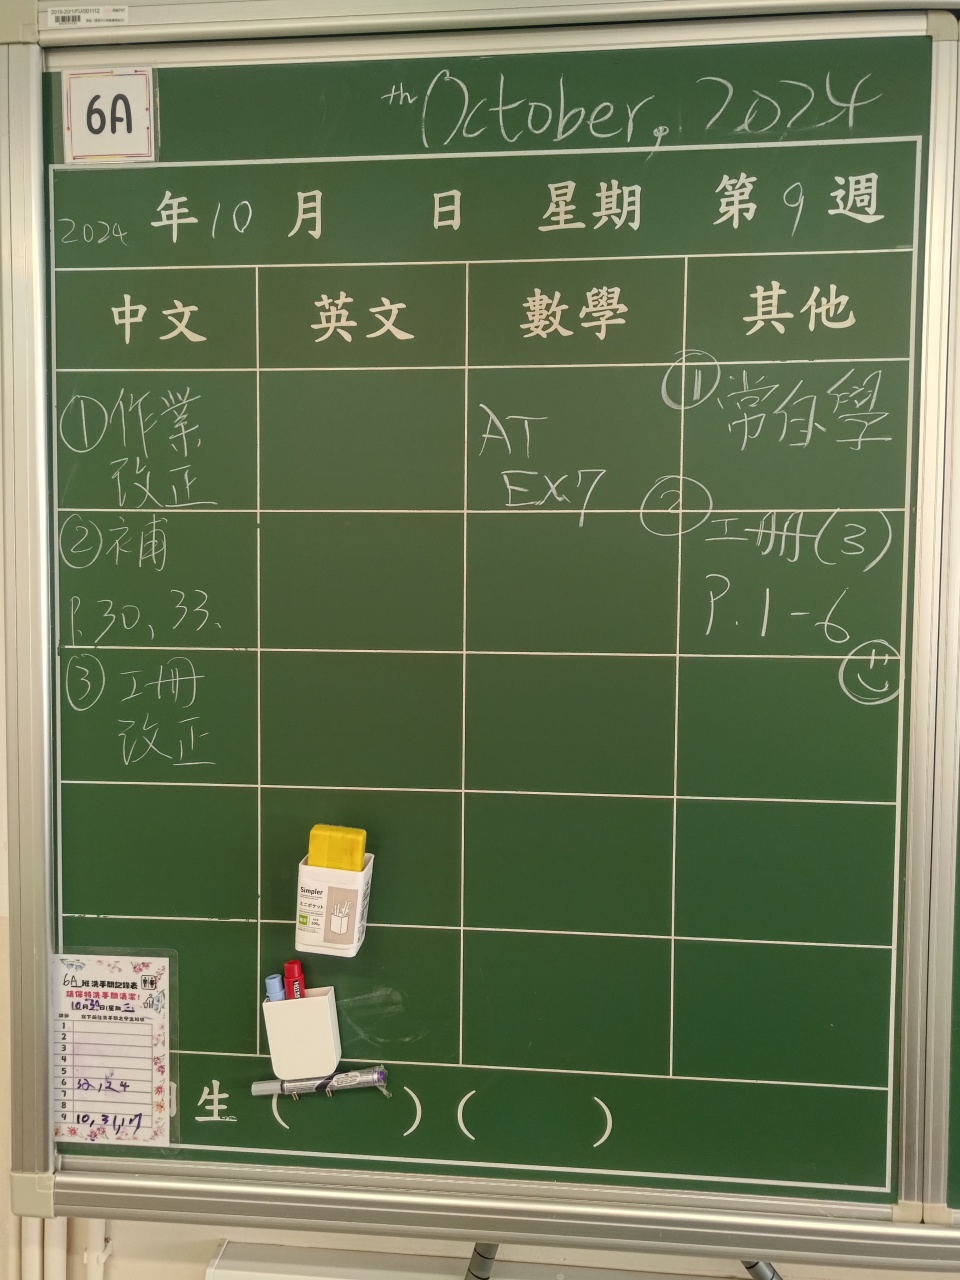 2019-20/1/FU/001112
6A
th October, 2024
2024 年 10 月 日 星期 第 9 週
中文 英文 數學 其他
① 作業
改正
② 補
P.30, 33.
③ 工冊
改正
AT
EX7
① 常自學
② 工冊(3)
P.1-6
Simpler
ミニポケット
6A 班洗手間記錄表
請保持洗手間清潔!
1
2
3
4
5
6
7
8
9 10, 31, 17
生 ( ) ( )